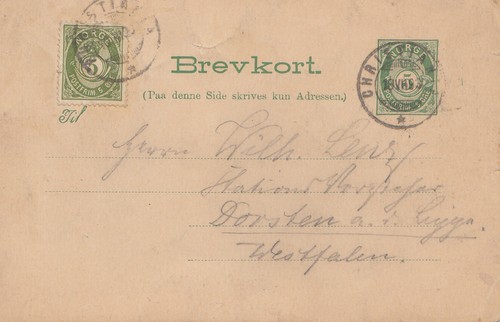 NORGE
5
POSTFRIM.
Brevkort.
(Paa denne Side skrives kun Adressen.)
NORGE
5
CHRISTI
13 VIII 3
Til
Herrn Wilh. Lenz
Stations Vorsteher
Dorsten a. d. Lippe.
Westfalen.